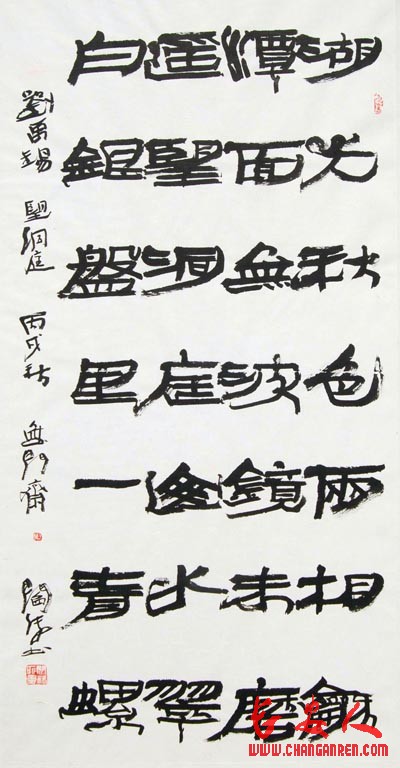 湖光秋色兩相龢
潭面無波鏡未磨
遥望洞庭水翠
白銀盤里一青螺
劉禹錫 望洞庭 丙戌秋 齋
长安人
WWW.CHANGANREN.COM